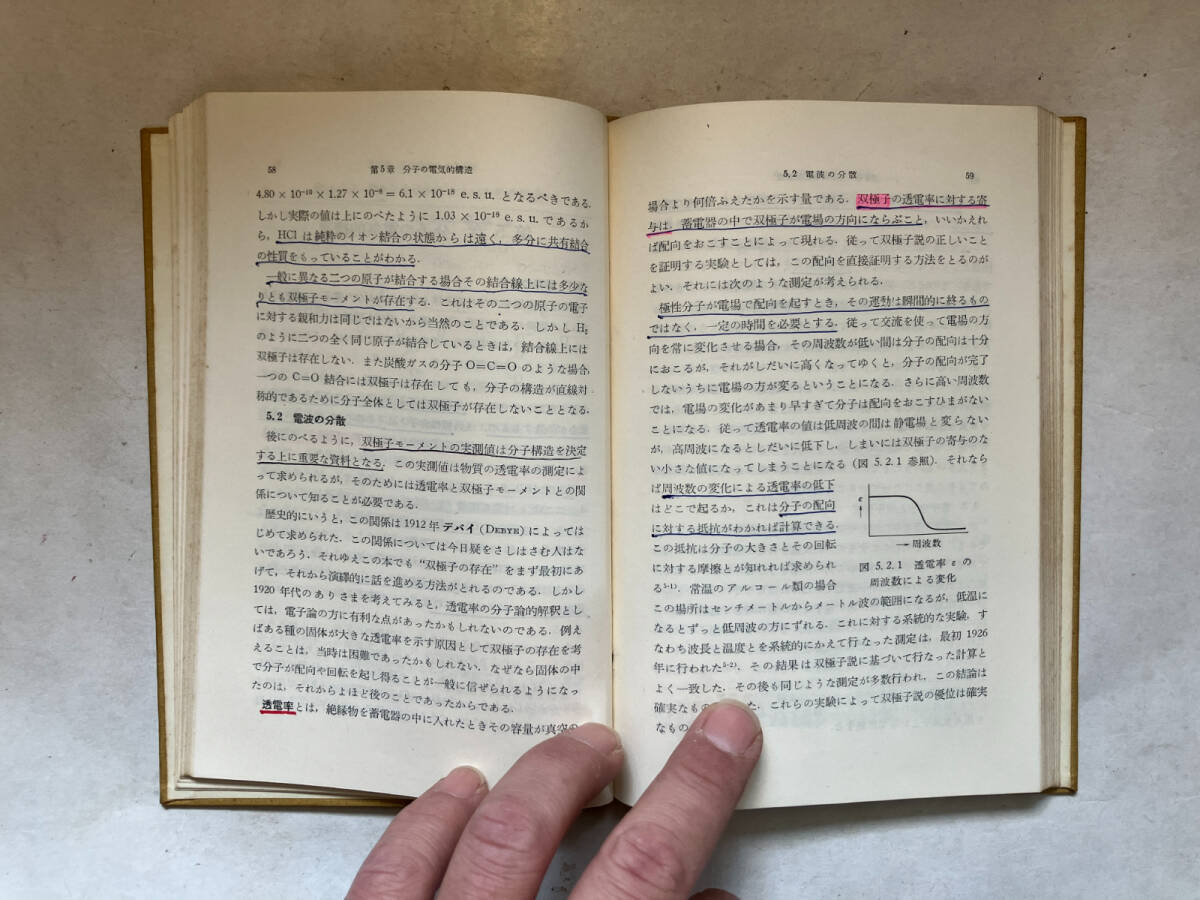 58
第5章 分子の電気的構造
4.80 × 10⁻¹⁰ × 1.27 × 10⁻⁸ = 6.1 × 10⁻¹⁸ e. s. u. となるべきである.
しかし実際の値は上にのべたように 1.03 × 10⁻¹⁸ e. s. u. であるか
ら, HCl は純粋のイオン結合の状態からは遠く, 多分に共有結合
の性質をもっていることがわかる.
一般に異なる二つの原子が結合する場合その結合線上には多少な
りとも双極子モーメントが存在する. これはその二つの原子の電子
に対する親和力は同じではないから当然のことである. しかし H₂
のように二つの全く同じ原子が結合しているときは, 結合線上には
双極子は存在しない. また炭酸ガスの分子 O=C=O のような場合,
一つの C=O 結合には双極子は存在しても, 分子の構造が直線対
称的であるために分子全体としては双極子が存在しないこととなる.
5.2 電波の分散
後にのべるように, 双極子モーメントの実測値は分子構造を決定
する上に重要な資料となる. この実測値は物質の透電率の測定によ
って求められるが, そのためには透電率と双極子モーメントとの関
係について知ることが必要である.
歴史的にいうと, この関係は 1912 年 デバイ (DEBYE) によっては
じめて求められた. この関係については今日疑をさしはさむ人はな
いであろう. それゆえこの本でも “双極子の存在” をまず最初にあ
げて, それから演繹的に話を進める方法がとれるのである. しかし
1920 年代のありさまを考えてみると, 透電率の分子論的解釈とし
ては, 電子論の方に有利な点があったかもしれないのである. 例え
ばある種の固体が大きな透電率を示す原因として双極子の存在を考
えることは, 当時は困難であったかもしれない. なぜなら固体の中
で分子が配向や回転を起し得ることが一般に信ぜられるようになっ
たのは, それからよほど後のことであったからである.
透電率とは, 絶縁物を蓄電器の中に入れたときその容量が真空の
5.2 電波の分散
59
場合より何倍ふえたかを示す量である. 双極子の透電率に対する寄
与は, 蓄電器の中で双極子が電場の方向にならぶこと, いいかえれ
ば配向をおこすことによって現れる. 従って双極子説の正しいこと
を証明する実験としては, この配向を直接証明する方法をとるのが
よい. それには次のような測定が考えられる.
極性分子が電場で配向を起すとき, その運動は瞬間的に終るもの
ではなく, 一定の時間を必要とする. 従って交流を使って電場の方
向を常に変化させる場合, その周波数が低い間は分子の配向は十分
におこるが, それがしだいに高くなってゆくと, 分子の配向が完了
しないうちに電場の方が変るということになる. さらに高い周波数
では, 電場の変化があまり早すぎて分子は配向をおこすひまがない
ことになる. 従って透電率の値は低周波の間は静電場と変らない
が, 高周波になるとしだいに低下し, しまいには双極子の寄与のな
い小さな値になってしまうことになる (図 5.2.1 参照). それなら
ば周波数の変化による透電率の低下
はどこで起るか, これは分子の配向
に対する抵抗がわかれば計算できる.
この抵抗は分子の大きさとその回転
に対する摩擦とが知れれば求められ
る⁵⁻¹⁾. 常温のアルコール類の場合
ε
↑
→ 周波数
図 5.2.1 透電率 ε の
周波数による変化
この場所はセンチメートルからメートル波の範囲になるが, 低温に
なるとずっと低周波の方にずれる. これに対する系統的な実験, す
なわち波長と温度とを系統的にかえて行なった測定は, 最初 1926
年に行われた⁵⁻²⁾. その結果は双極子説に基づいて行なった計算と
よく一致した. その後も同じような測定が多数行われ, この結論は
確実なもの た. これらの実験によって双極子説の優位は確実
なもの